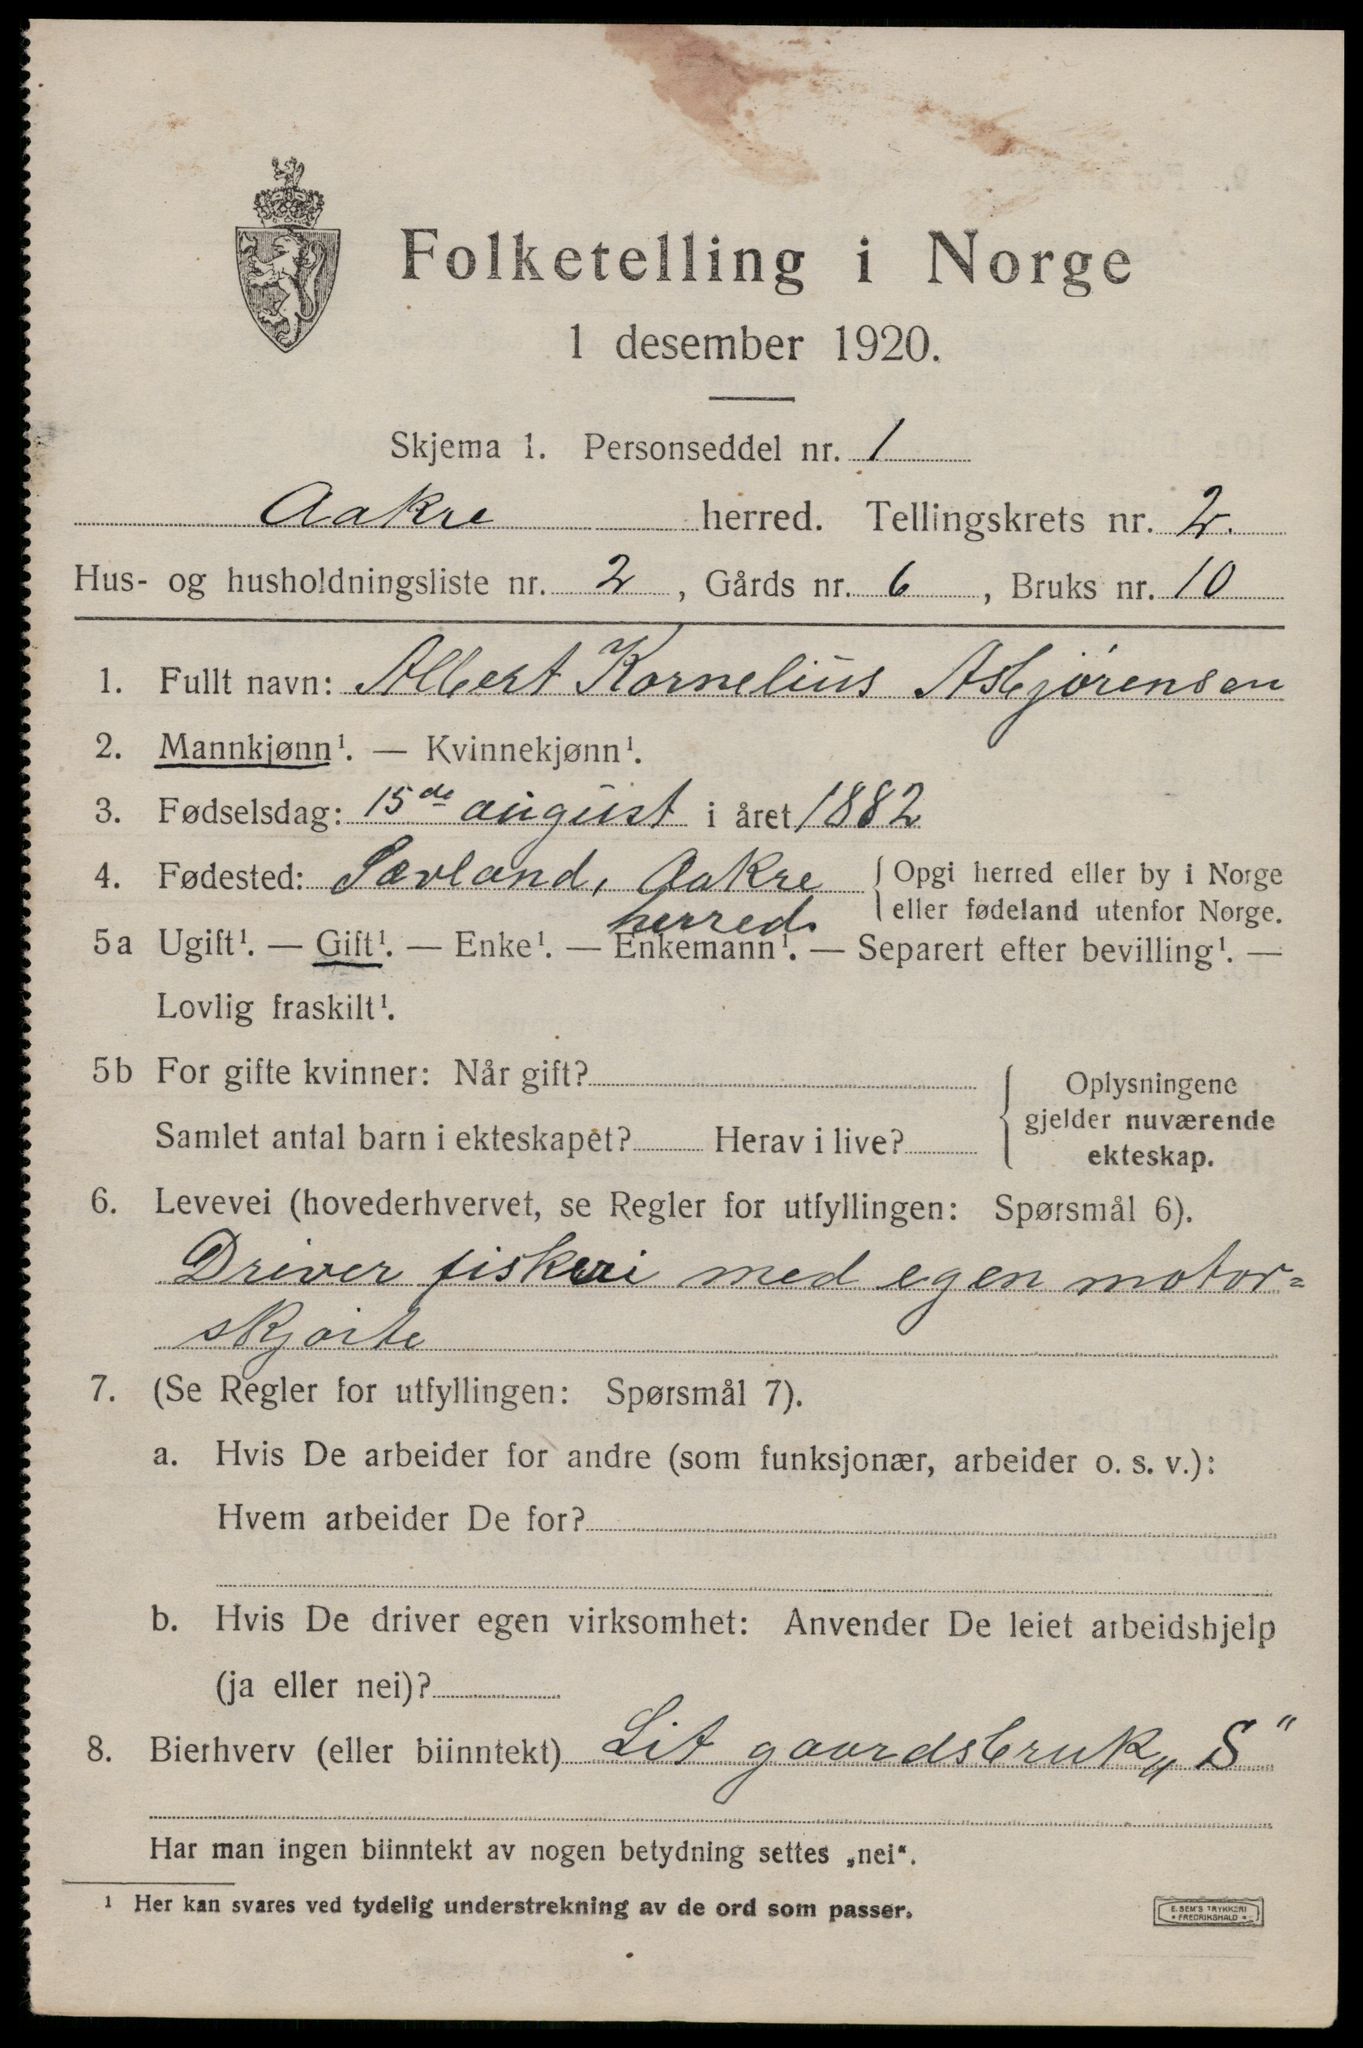 Folketelling i Norge
1 desember 1920.
Skjema 1. Personseddel nr. 1
Aakre herred. Tellingskrets nr. 2.
Hus- og husholdningsliste nr. 2, Gårds nr. 6, Bruks nr. 10
1. Fullt navn: Albert Kornelius Asbjørensen
2. Mannkjønn¹. — Kvinnekjønn¹.
3. Fødselsdag: 15de august i året 1882
4. Fødested: Sævland, Aakre herred. { Opgi herred eller by i Norge
eller fødeland utenfor Norge.
5a Ugift¹. — Gift¹. — Enke¹. — Enkemann¹. — Separert efter bevilling¹. —
Lovlig fraskilt¹.
5b For gifte kvinner: Når gift?
Samlet antal barn i ekteskapet? Herav i live?
{ Oplysningene
gjelder nuværende
ekteskap.
6. Levevei (hovederhvervet, se Regler for utfyllingen: Spørsmål 6).
Driver fiskeri med egen motor=
skjøite
7. (Se Regler for utfyllingen: Spørsmål 7).
a. Hvis De arbeider for andre (som funksjonær, arbeider o. s. v.):
Hvem arbeider De for?
b. Hvis De driver egen virksomhet: Anvender De leiet arbeidshjelp
(ja eller nei)?
8. Bierhverv (eller biinntekt) Lit gaardsbruk „S“
Har man ingen biinntekt av nogen betydning settes „nei“.
¹ Her kan svares ved tydelig understrekning av de ord som passer.
E. SEM'S TRYKKERI
• FREDRIKSHALD •